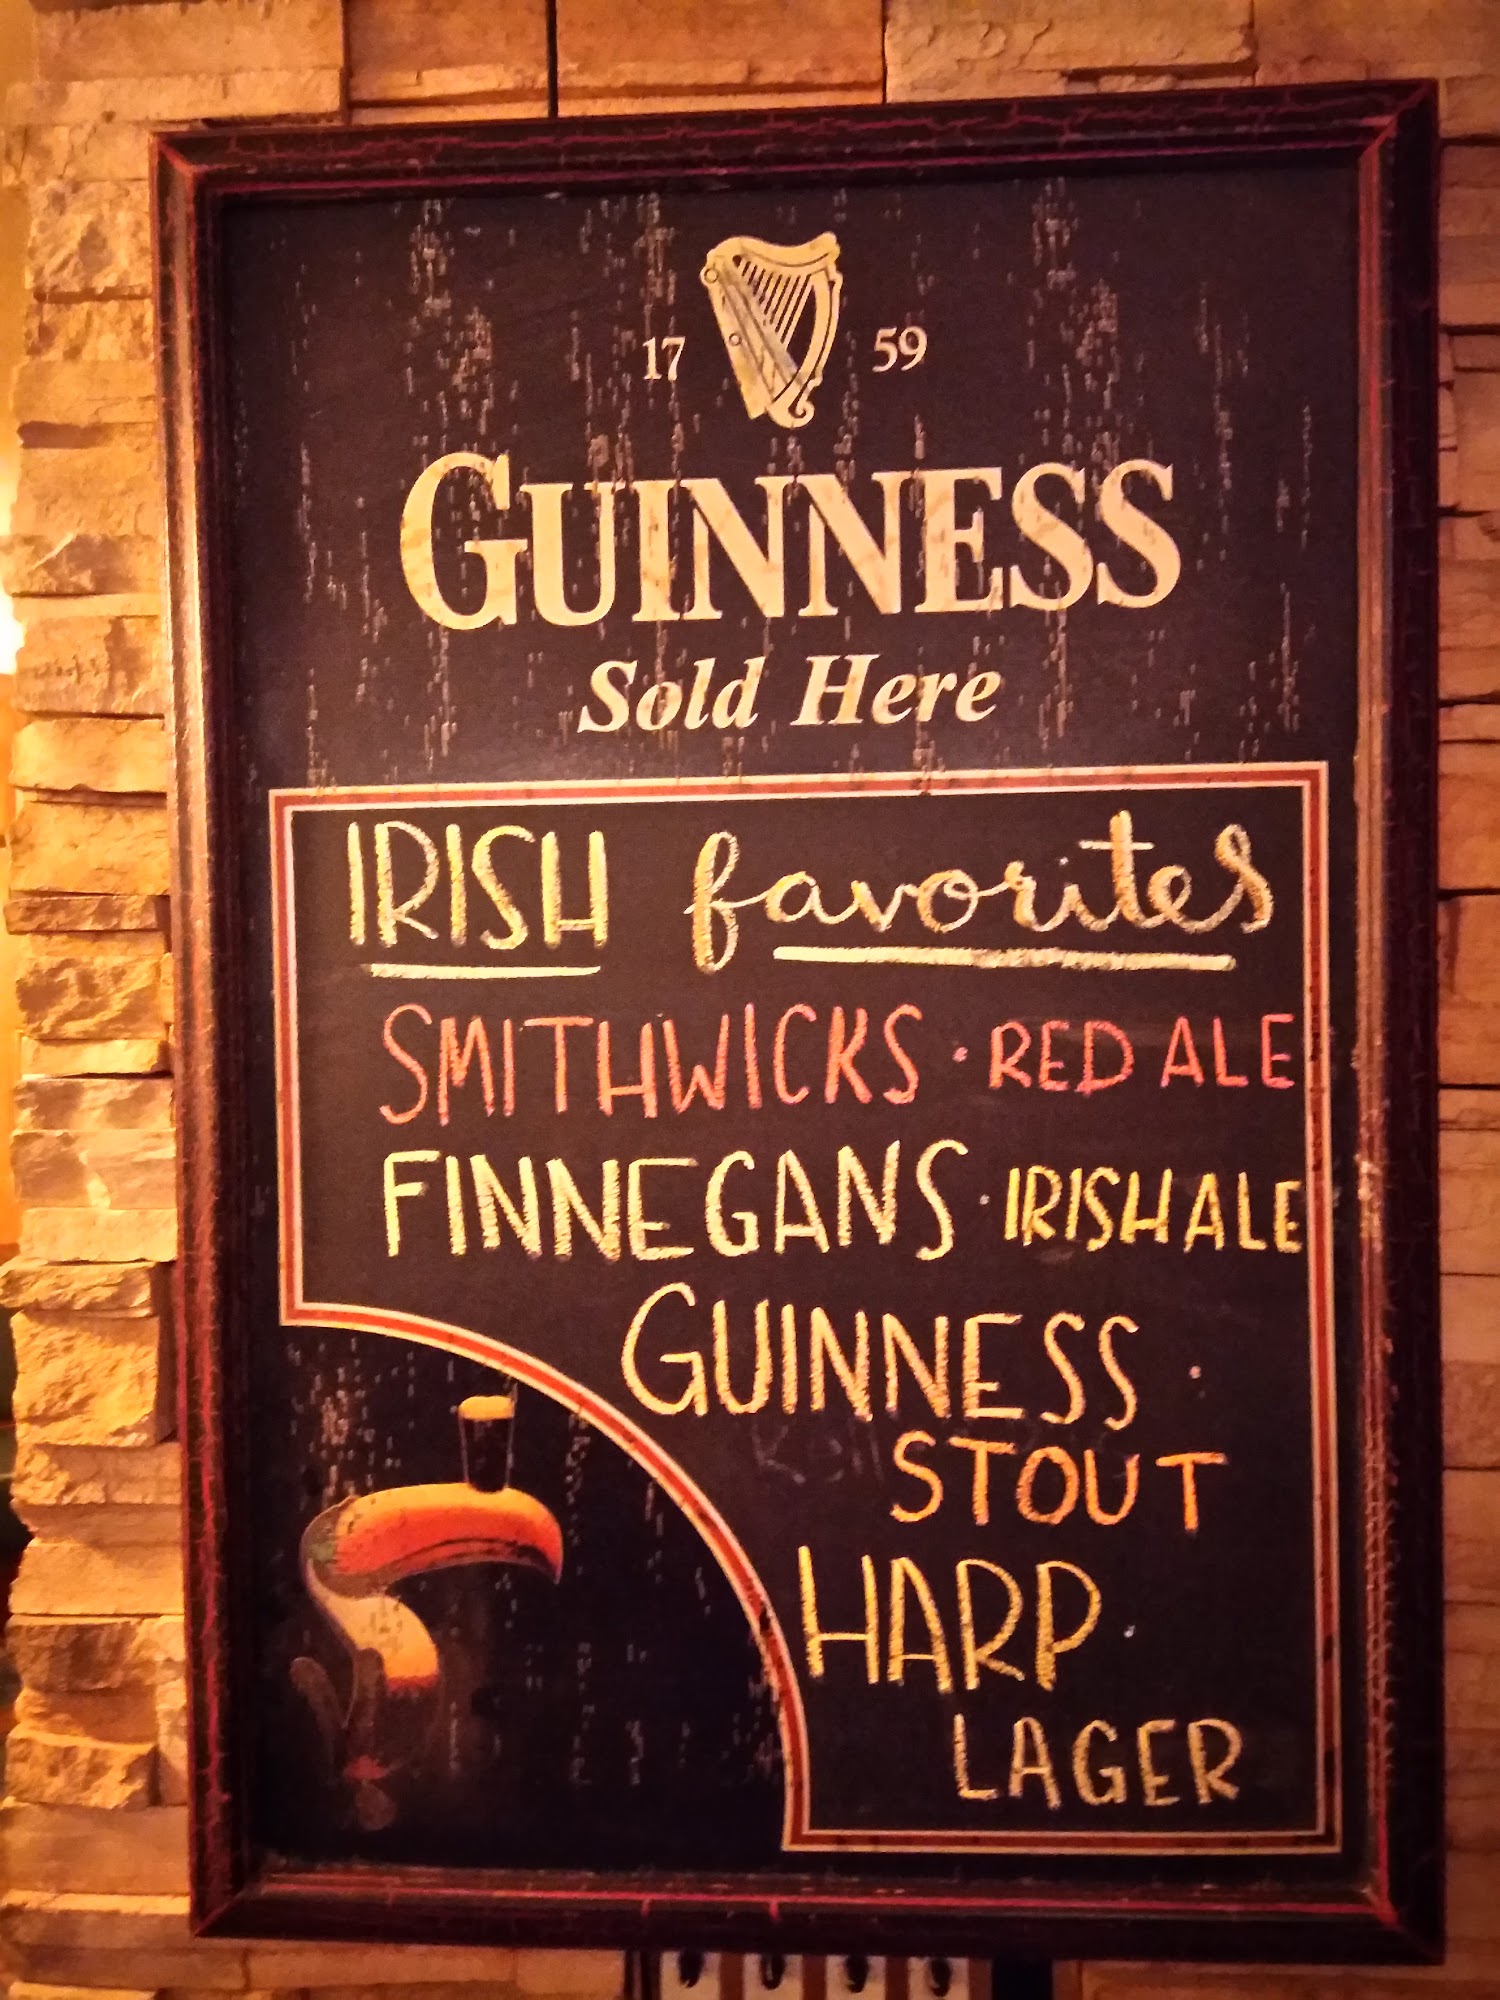 17 59
GUINNESS
Sold Here
IRISH favorites
SMITHWICKS · RED ALE
FINNEGANS · IRISH ALE
GUINNESS ·
STOUT
HARP ·
LAGER